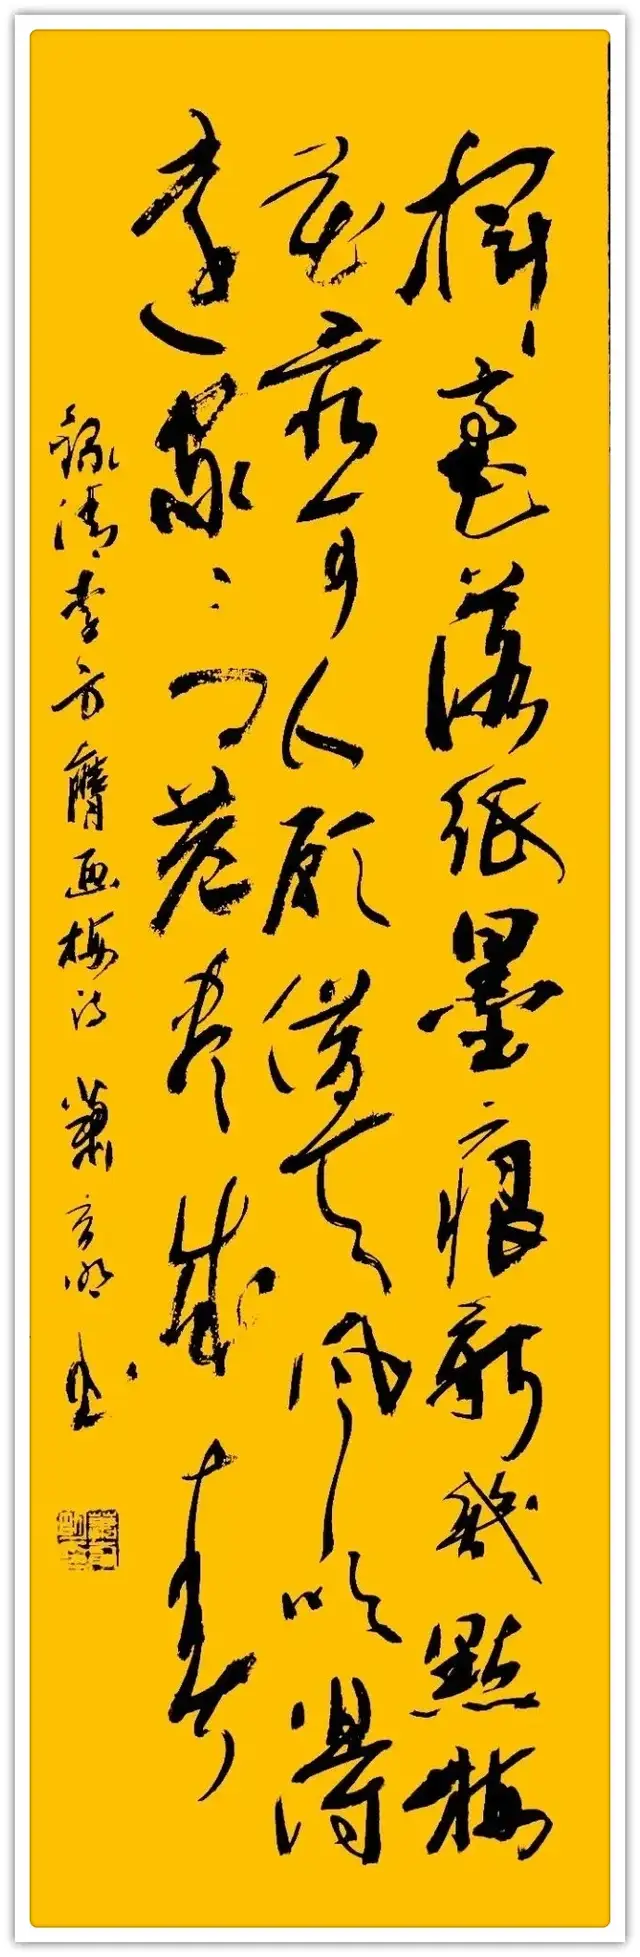 揮毫落紙墨痕新幾點梅
花最可人願借天風吹得
遠家〻門巷盡成春
錄清李方膺画梅诗 蕭明书